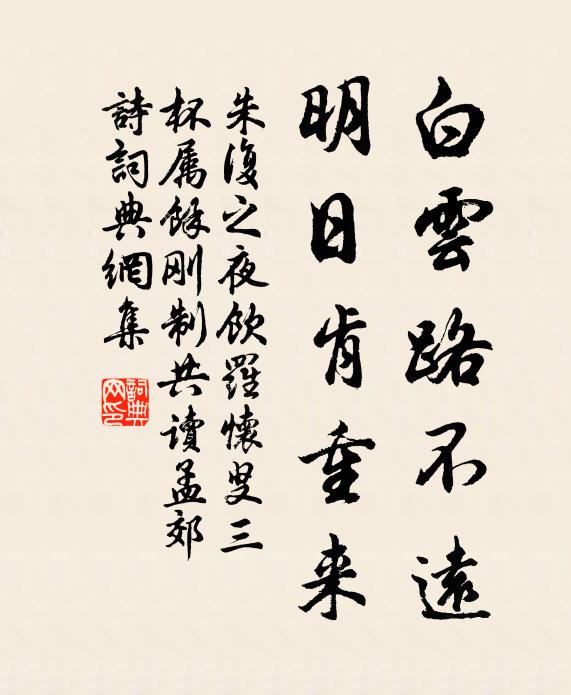 白雲路不遠
明日肯重来
朱復之夜飲羅懷叟三
杯属餘刚制共讀孟郊
詩詞典網集
詞典
网印